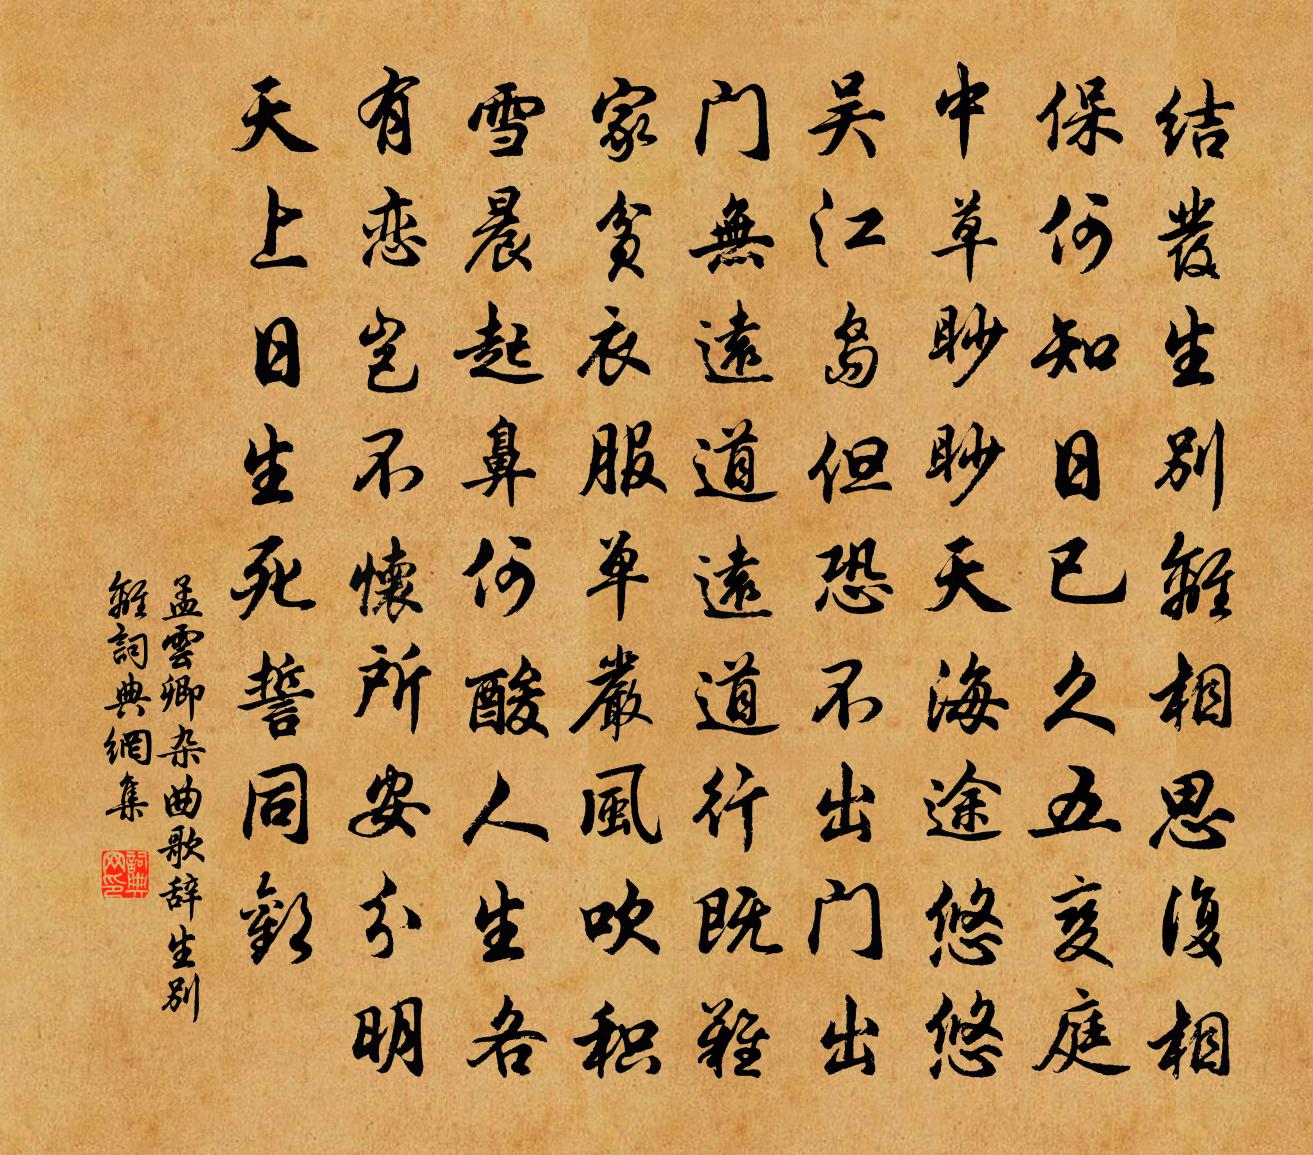 结發生别離相思復相
保何知日已久五变庭
中草眇眇天海途悠悠
吴江岛但恐不出门出
门無遠道遠道行既難
家贫衣服单嚴風吹积
雪晨起鼻何酸人生各
有恋岂不懷所安分明
天上日生死誓同歡
孟雲卿杂曲歌辞生别
離詞典網集
詞典网印